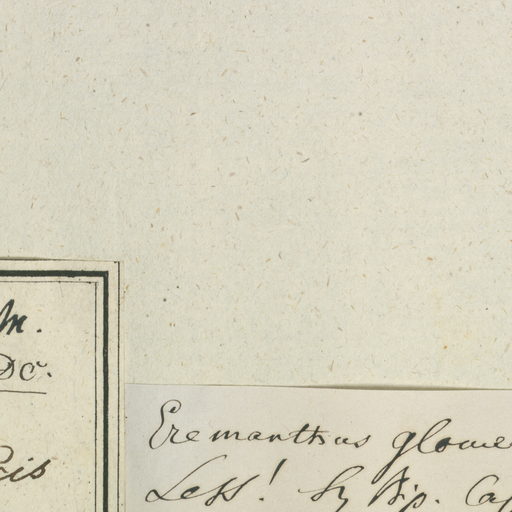 m.
DC.
Eremanthus glome
Less! Sz Bip. Ca